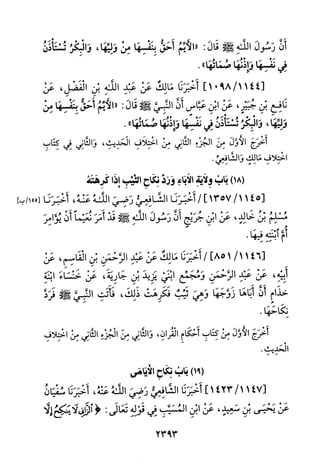 أَنَّ رَسُولَ اللهِ ﷺ قَالَ: «الأَيِّمُ أَحَقُّ بِنَفْسِهَا مِنْ وَلِيِّهَا، وَالْبِكْرُ تُسْتَأْذَنُ
فِي نَفْسِهَا وَإِذْنُهَا صُمَاتُهَا».
[١٠٩٨/١١٤٤] أَخْبَرَنَا مَالِكٌ عَنْ عَبْدِ اللهِ بْنِ الْفَضْلِ، عَنْ
نَافِعِ بْنِ جُبَيْرٍ، عَنِ ابْنِ عَبَّاسٍ أَنَّ النَّبِيَّ ﷺ قَالَ: «الأَيِّمُ أَحَقُّ بِنَفْسِهَا مِنْ
وَلِيِّهَا، وَالْبِكْرُ تُسْتَأْذَنُ فِي نَفْسِهَا وَإِذْنُهَا صُمَاتُهَا».
أَخْرَجَ الأَوَّلَ مِنَ الْجُزْءِ الثَّانِي مِنَ اخْتِلَافِ الْحَدِيثِ، وَالثَّانِي فِي كِتَابِ
اخْتِلَافِ مَالِكٍ وَالشَّافِعِيِّ.
(١٨) بَابُ وِلَايَةِ الآبَاءِ وَرَدِّ نِكَاحِ الثَّيِّبِ إِذَا كَرِهَتْهُ
[١٣٥٧/١١٤٥] / أَخْبَرَنَا الشَّافِعِيُّ رَضِيَ اللهُ عَنْهُ، أَخْبَرَنَا [١٥٥/ب]
مُسْلِمُ بْنُ خَالِدٍ، عَنِ ابْنِ جُرَيْجٍ أَنَّ رَسُولَ اللهِ ﷺ قَدْ أَمَرَ نُعَيْمًا أَنْ يُؤَامِرَ
أُمَّ ابْنَتِهِ فِيهَا.
[٨٥١/١١٤٦] / أَخْبَرَنَا مَالِكٌ عَنْ عَبْدِ الرَّحْمَنِ بْنِ الْقَاسِمِ، عَنْ
أَبِيهِ، عَنْ عَبْدِ الرَّحْمَنِ وَمُجَمِّعٍ ابْنَيْ يَزِيدَ بْنِ جَارِيَةَ، عَنْ خَنْسَاءَ ابْنَةِ
خِذَامٍ أَنَّ أَبَاهَا زَوَّجَهَا وَهِيَ ثَيِّبٌ فَكَرِهَتْ ذَلِكَ، فَأَتَتِ النَّبِيَّ ﷺ فَرَدَّ
نِكَاحَهَا.
أَخْرَجَ الأَوَّلَ مِنْ كِتَابِ أَحْكَامِ الْقُرْآنِ، وَالثَّانِي مِنَ الْجُزْءِ الثَّانِي مِنَ اخْتِلَافِ
الْحَدِيثِ.
(١٩) بَابُ نِكَاحِ الأَيَامَى
[١٤٢٣/١١٤٧] أَخْبَرَنَا الشَّافِعِيُّ رَضِيَ اللهُ عَنْهُ، أَخْبَرَنَا سُفْيَانُ
عَنْ يَحْيَى بْنِ سَعِيدٍ، عَنِ ابْنِ الْمُسَيَّبِ فِي قَوْلِهِ تَعَالَى: ﴿الزَّانِي لَا يَنكِحُ إِلَّا
٢٣٩٣